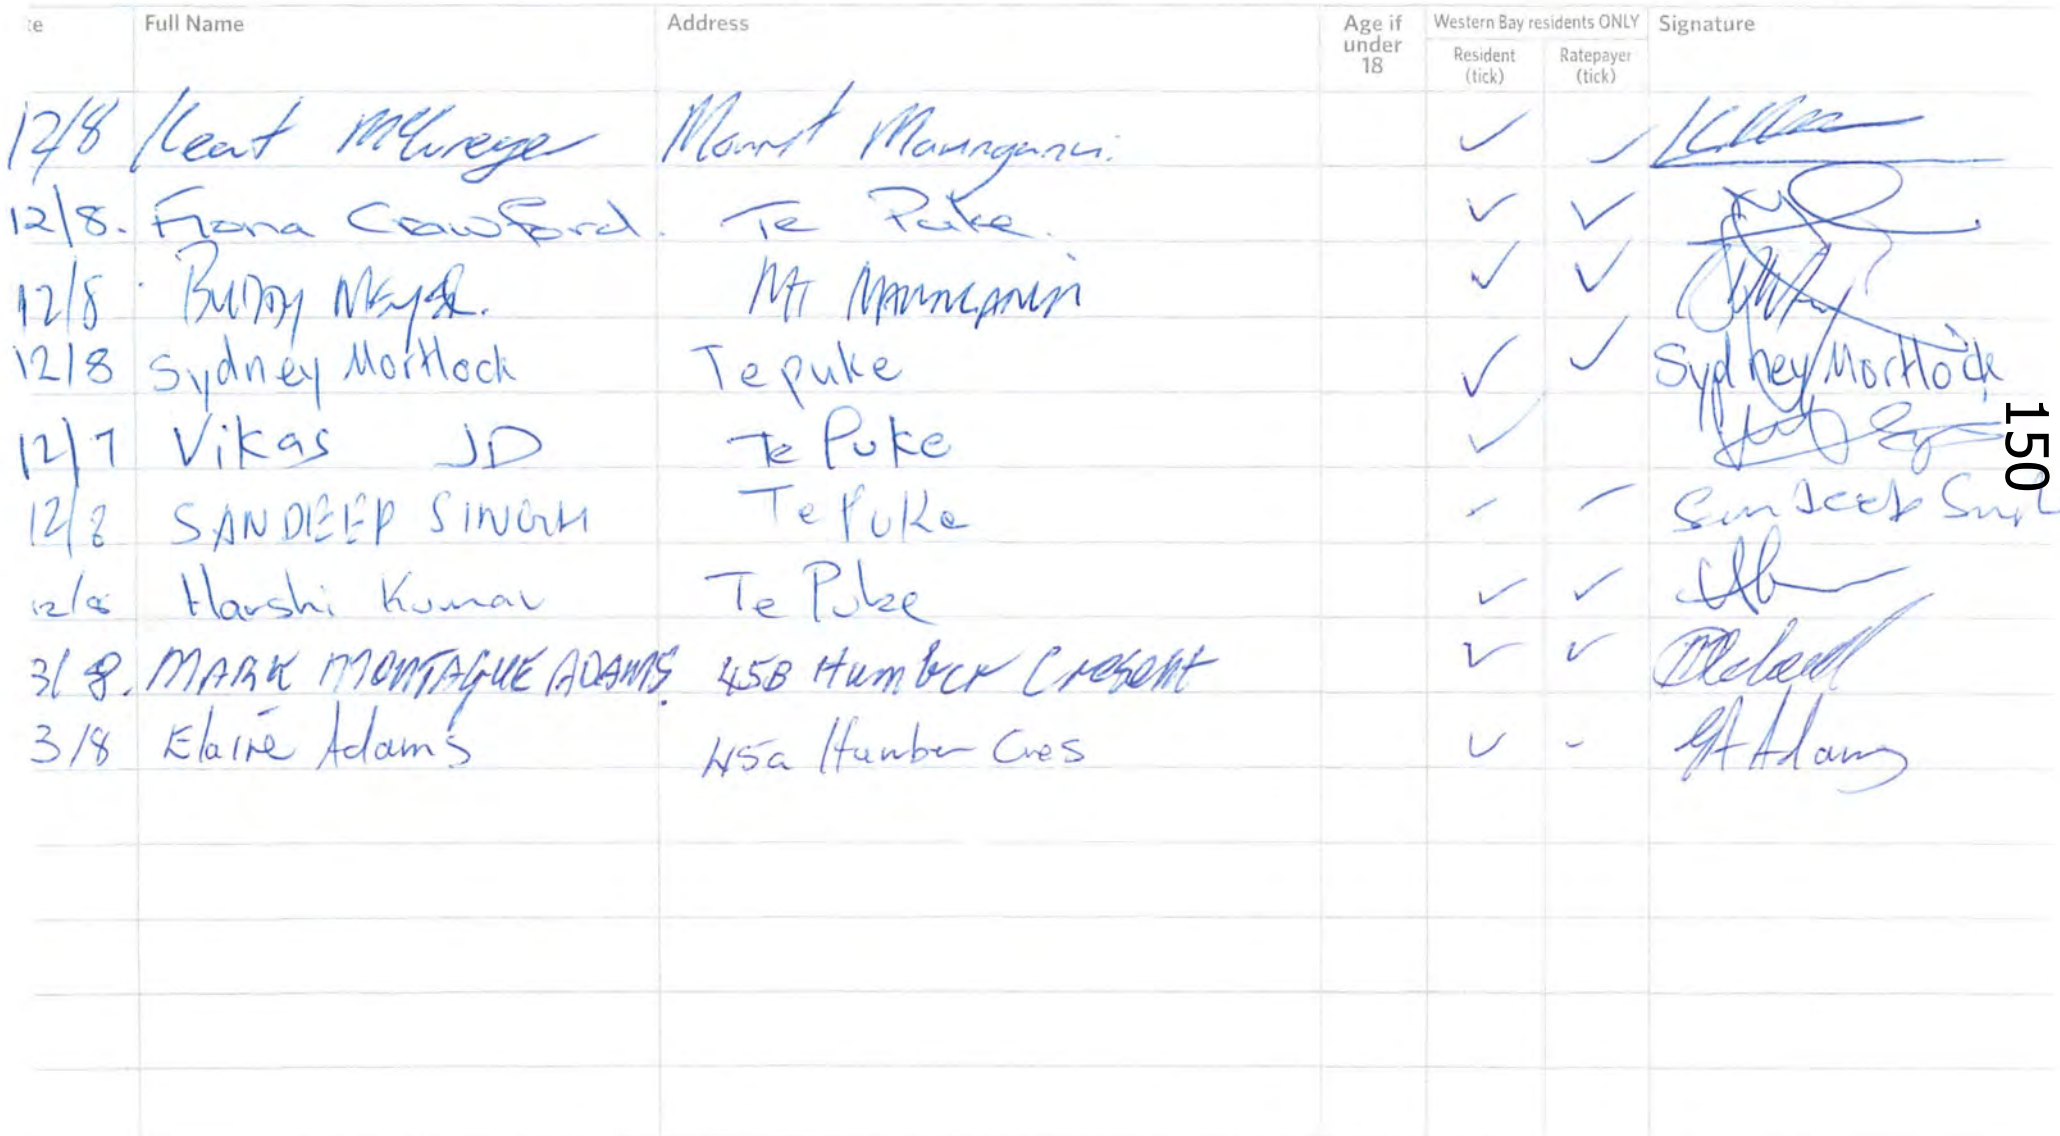 te Full Name Address Age if under 18 Western Bay residents ONLY Resident (tick) Ratepayer (tick) Signature
12/8 Kent Mount Maunganui.
12/8. Fiona Crawford. Te Puke.
12/8 Buddy Meyer. Mt Maunganui
12/8 Sydney Mortlock Te puke ✓ ✓ Sydney Mortlock
12/7 Vikas JD Te Puke ✓
12/8 SANDEEP SINGH Te Puke ✓ ✓ Sandeep Singh
12/8 Harshi Kumar Te Puke ✓ ✓
3/8. MARK MONTAGUE ADAMS. 45B Humber Cresent ✓ ✓
3/8 Elaine Adams 45a Humber Cres ✓ ✓ Adams
150